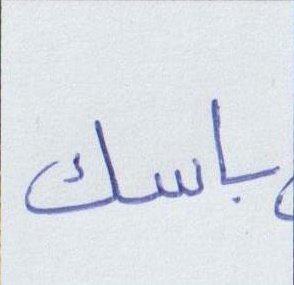 باسك